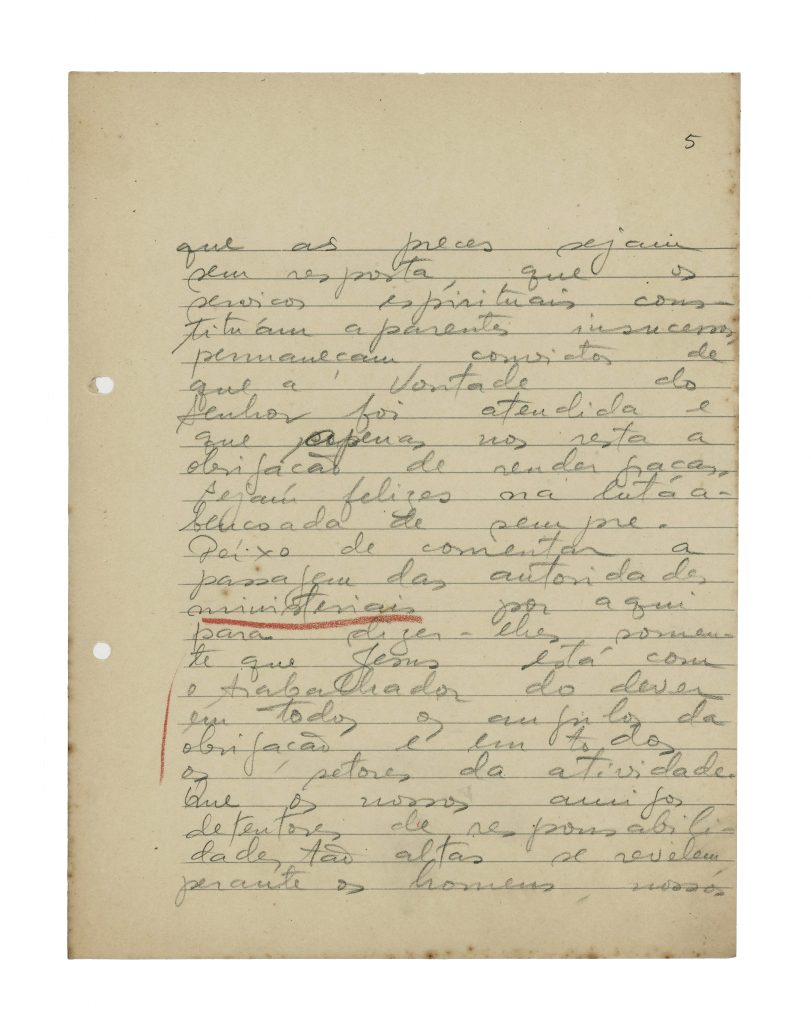 5
que as preces sejam
sem resposta, que os
serviços espirituais cons-
tituam aparentes insucessos,
permaneçam convictos de
que a Vontade do
Senhor foi atendida e
que apenas nos resta a
obrigação de render graças.
Sejam felizes na luta a-
bençoada de sempre.
Deixo de comentar a
passagem das autoridades
ministeriais por aqui
para dizer-lhes somen-
te que Jesus está com
o trabalhador do dever
em todos os angulos da
obrigação e em todos
os setores da atividade.
Que os nossos amigos
detentores de responsabili-
dades tão altas se revelem
perante os homens, nossos